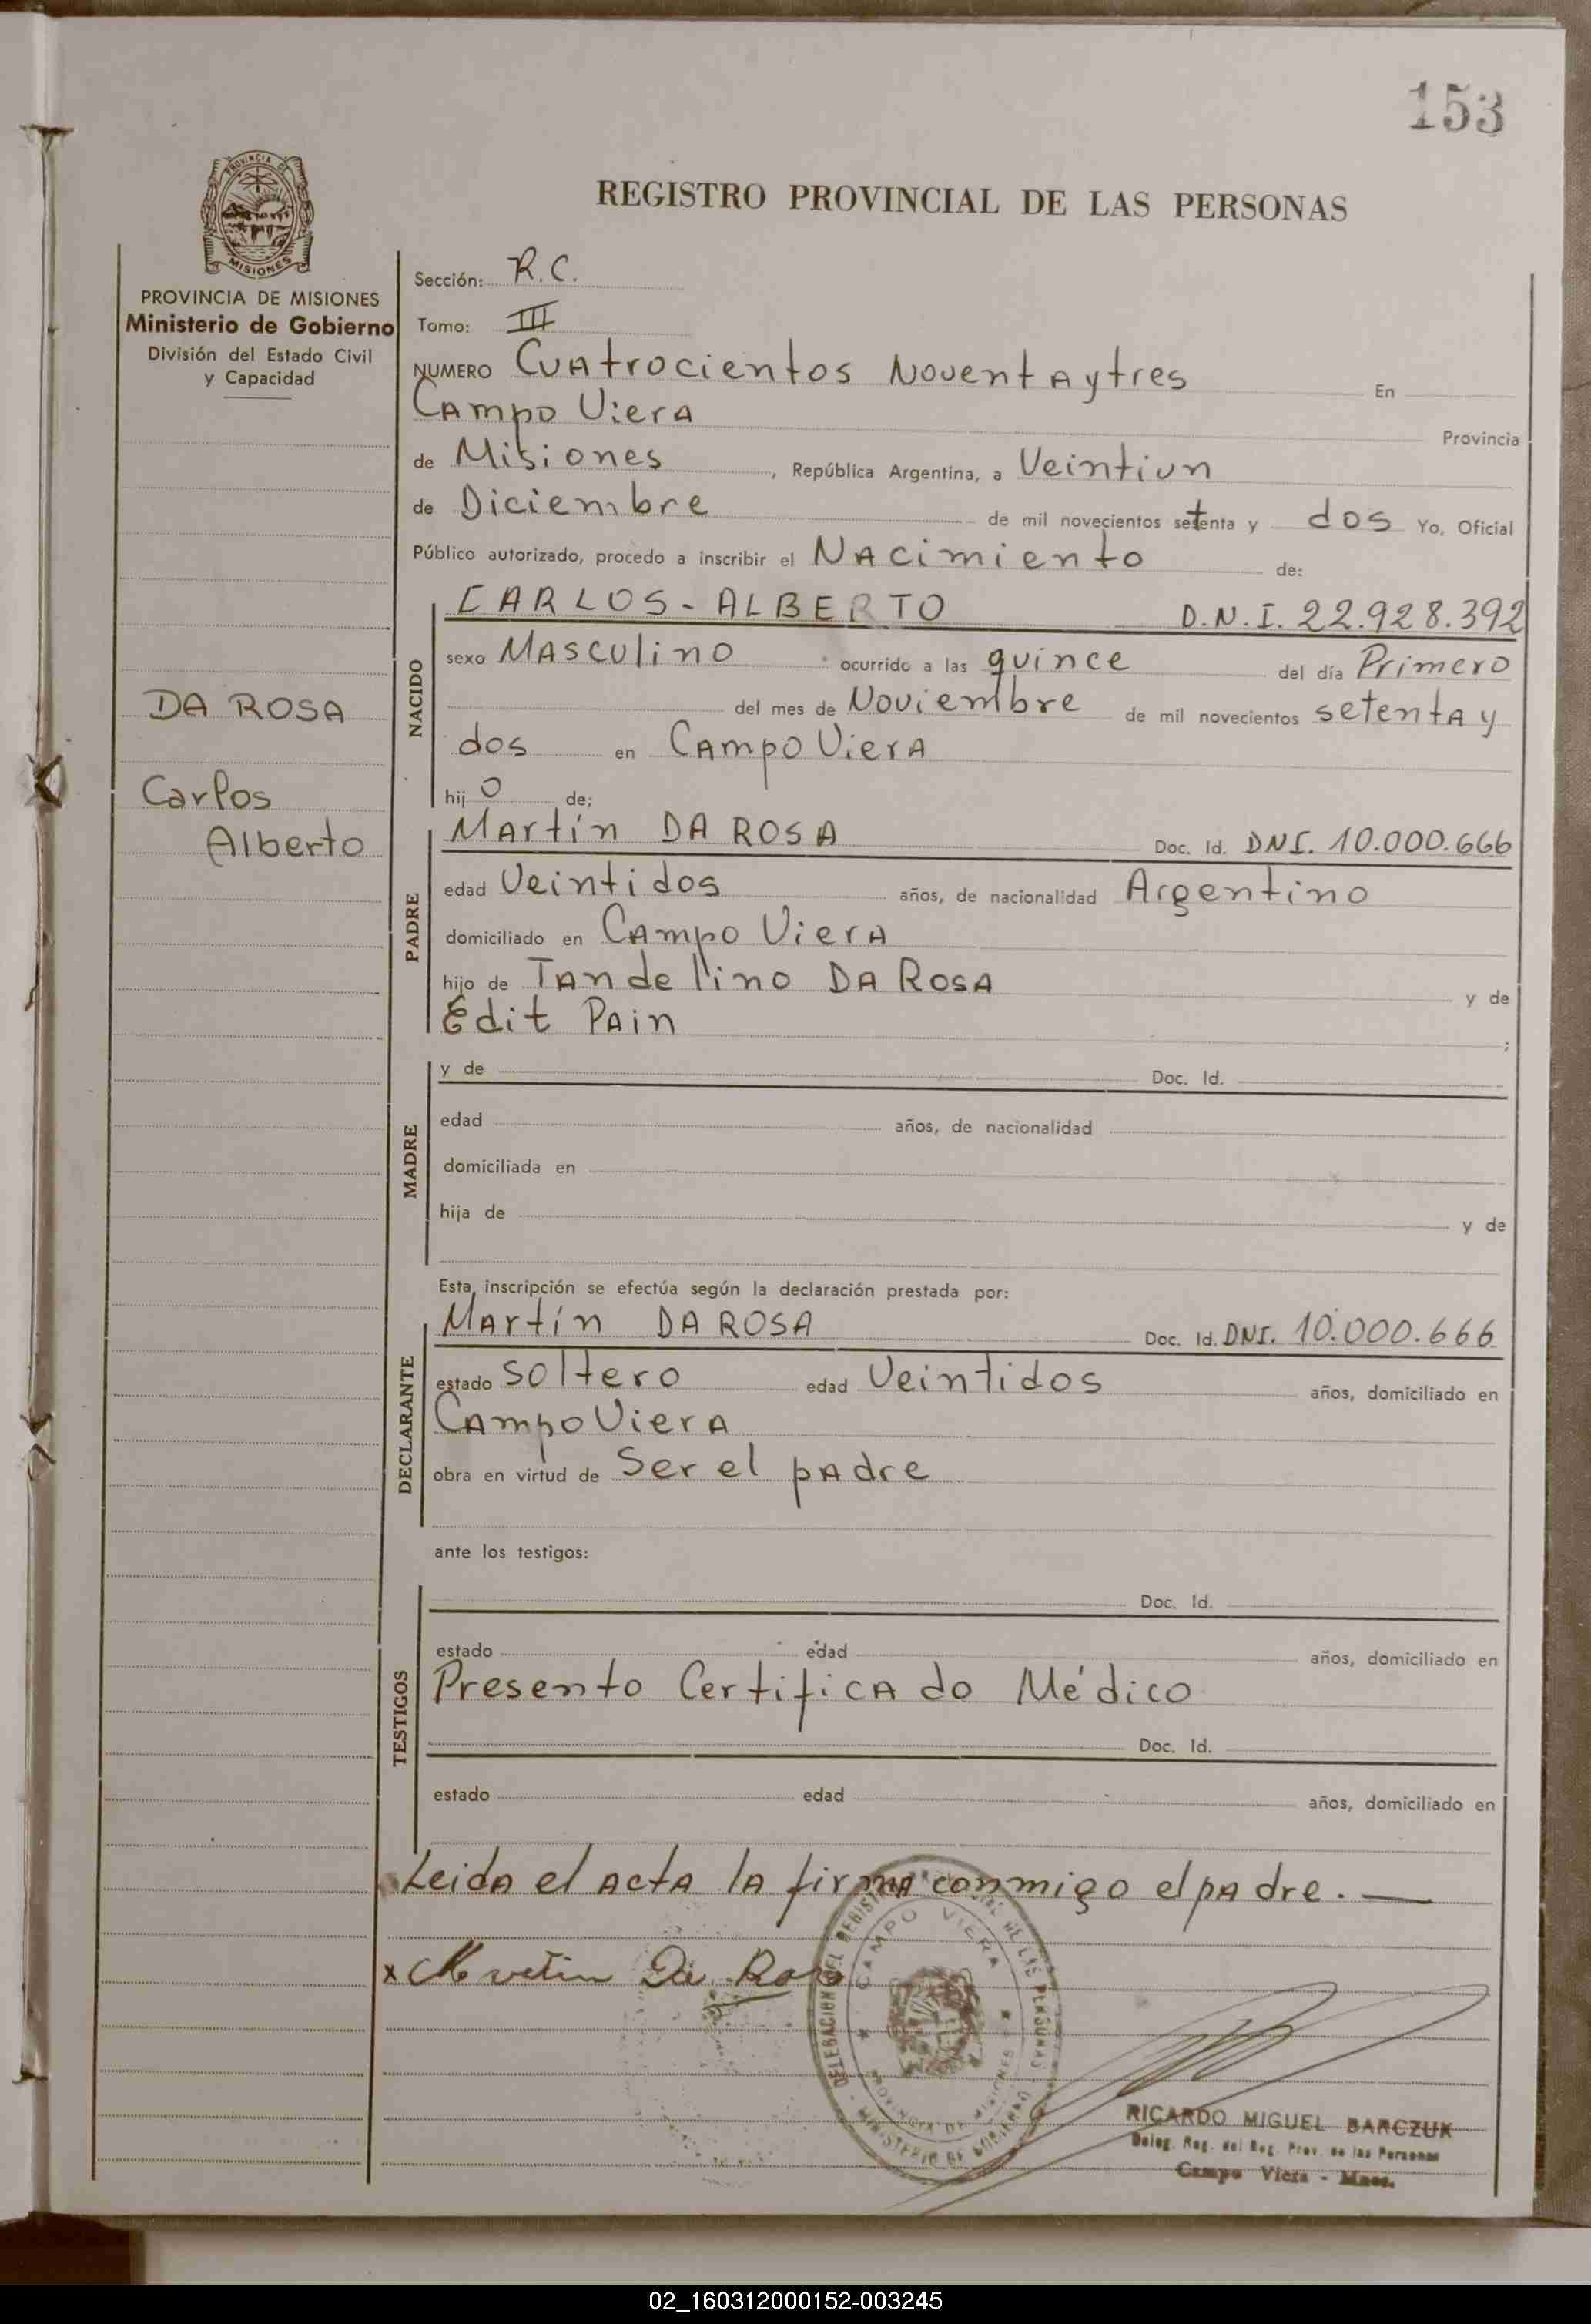 153
REGISTRO PROVINCIAL DE LAS PERSONAS
PROVINCIA DE MISIONES
MISIONES
PROVINCIA DE MISIONES
Ministerio de Gobierno
División del Estado Civil
y Capacidad
DA ROSA
Carlos
Alberto
Sección: R.C.
Tomo: III
NUMERO Cuatrocientos Noventaytres En
Campo Viera Provincia
de Misiones, República Argentina, a Veintiun
de Diciembre de mil novecientos setenta y dos Yo, Oficial
Público autorizado, procedo a inscribir el Nacimiento de:
NACIDO
CARLOS-ALBERTO D.N.I. 22.928.392
sexo Masculino ocurrido a las quince del día Primero
del mes de Noviembre de mil novecientos setenta y
dos en Campo Viera
hij o de;
PADRE
Martín DA ROSA Doc. Id. DNI. 10.000.666
edad Veintidos años, de nacionalidad Argentino
domiciliado en Campo Viera
hijo de Tandelino DA ROSA y de
Edit Pain ;
MADRE
y de Doc. Id.
edad años, de nacionalidad
domiciliada en
hija de y de
Esta inscripción se efectúa según la declaración prestada por:
DECLARANTE
Martín DA ROSA Doc. Id. DNI. 10.000.666
estado soltero edad Veintidos años, domiciliado en
Campo Viera
obra en virtud de Ser el padre
ante los testigos:
TESTIGOS
Doc. Id.
estado edad años, domiciliado en
Presento Certificado Médico
Doc. Id.
estado edad años, domiciliado en
Leida el acta la firma conmigo el padre.
x Martin Da Rosa
DELEGACION DEL REGISTRO PROVINCIAL DE LAS PERSONAS
CAMPO VIERA
PROVINCIA DE MISIONES
MINISTERIO DE GOBIERNO
RICARDO MIGUEL BARCZUK
Deleg. Reg. del Reg. Prov. de las Personas
Campo Viera - Mnes.
02_160312000152-003245